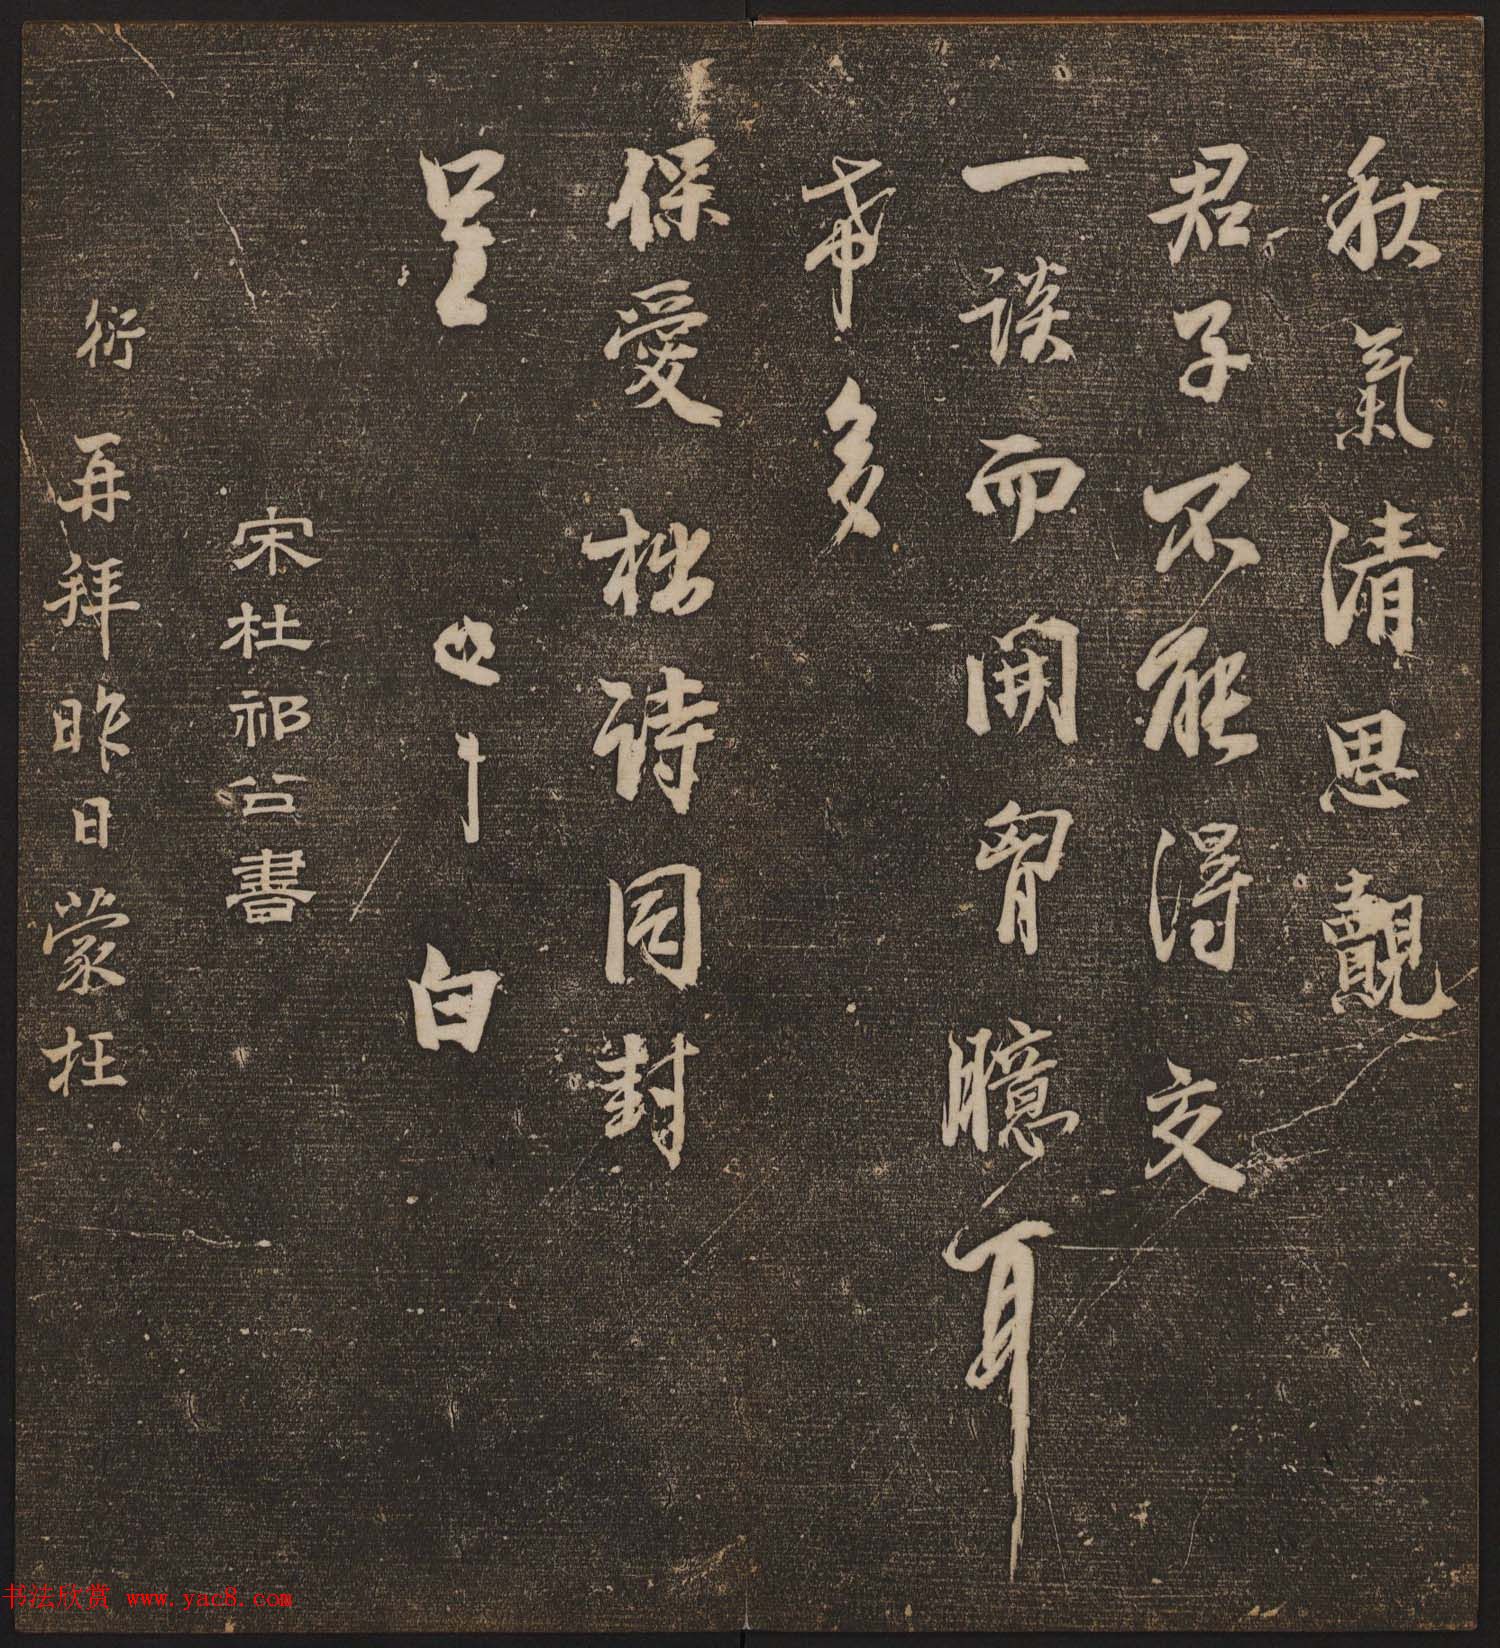 秋氣清思覿
君子不能得交
一談而開胷臆耳
希多
保愛拙詩同封
呈
白
宋杜祁公書
衍再拜昨日蒙枉
书法欣赏 www.yac8.com